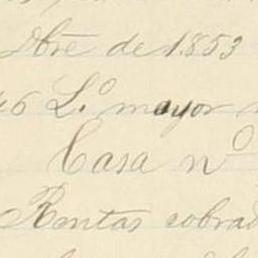 Dbre de 1853
46 L.º mayor
Casa nº
Rentas cobrad